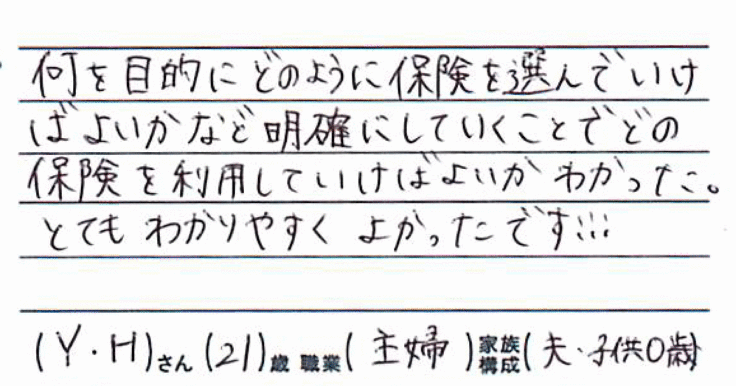 何を目的にどのように保険を選んでいけ
ばよいかなど明確にしていくことでどの
保険を利用していけばよいかわかった。
とてもわかりやすく よかったです!!!
(Y・H)さん (21)歳 職業( 主婦 )家族構成(夫・子供0歳)